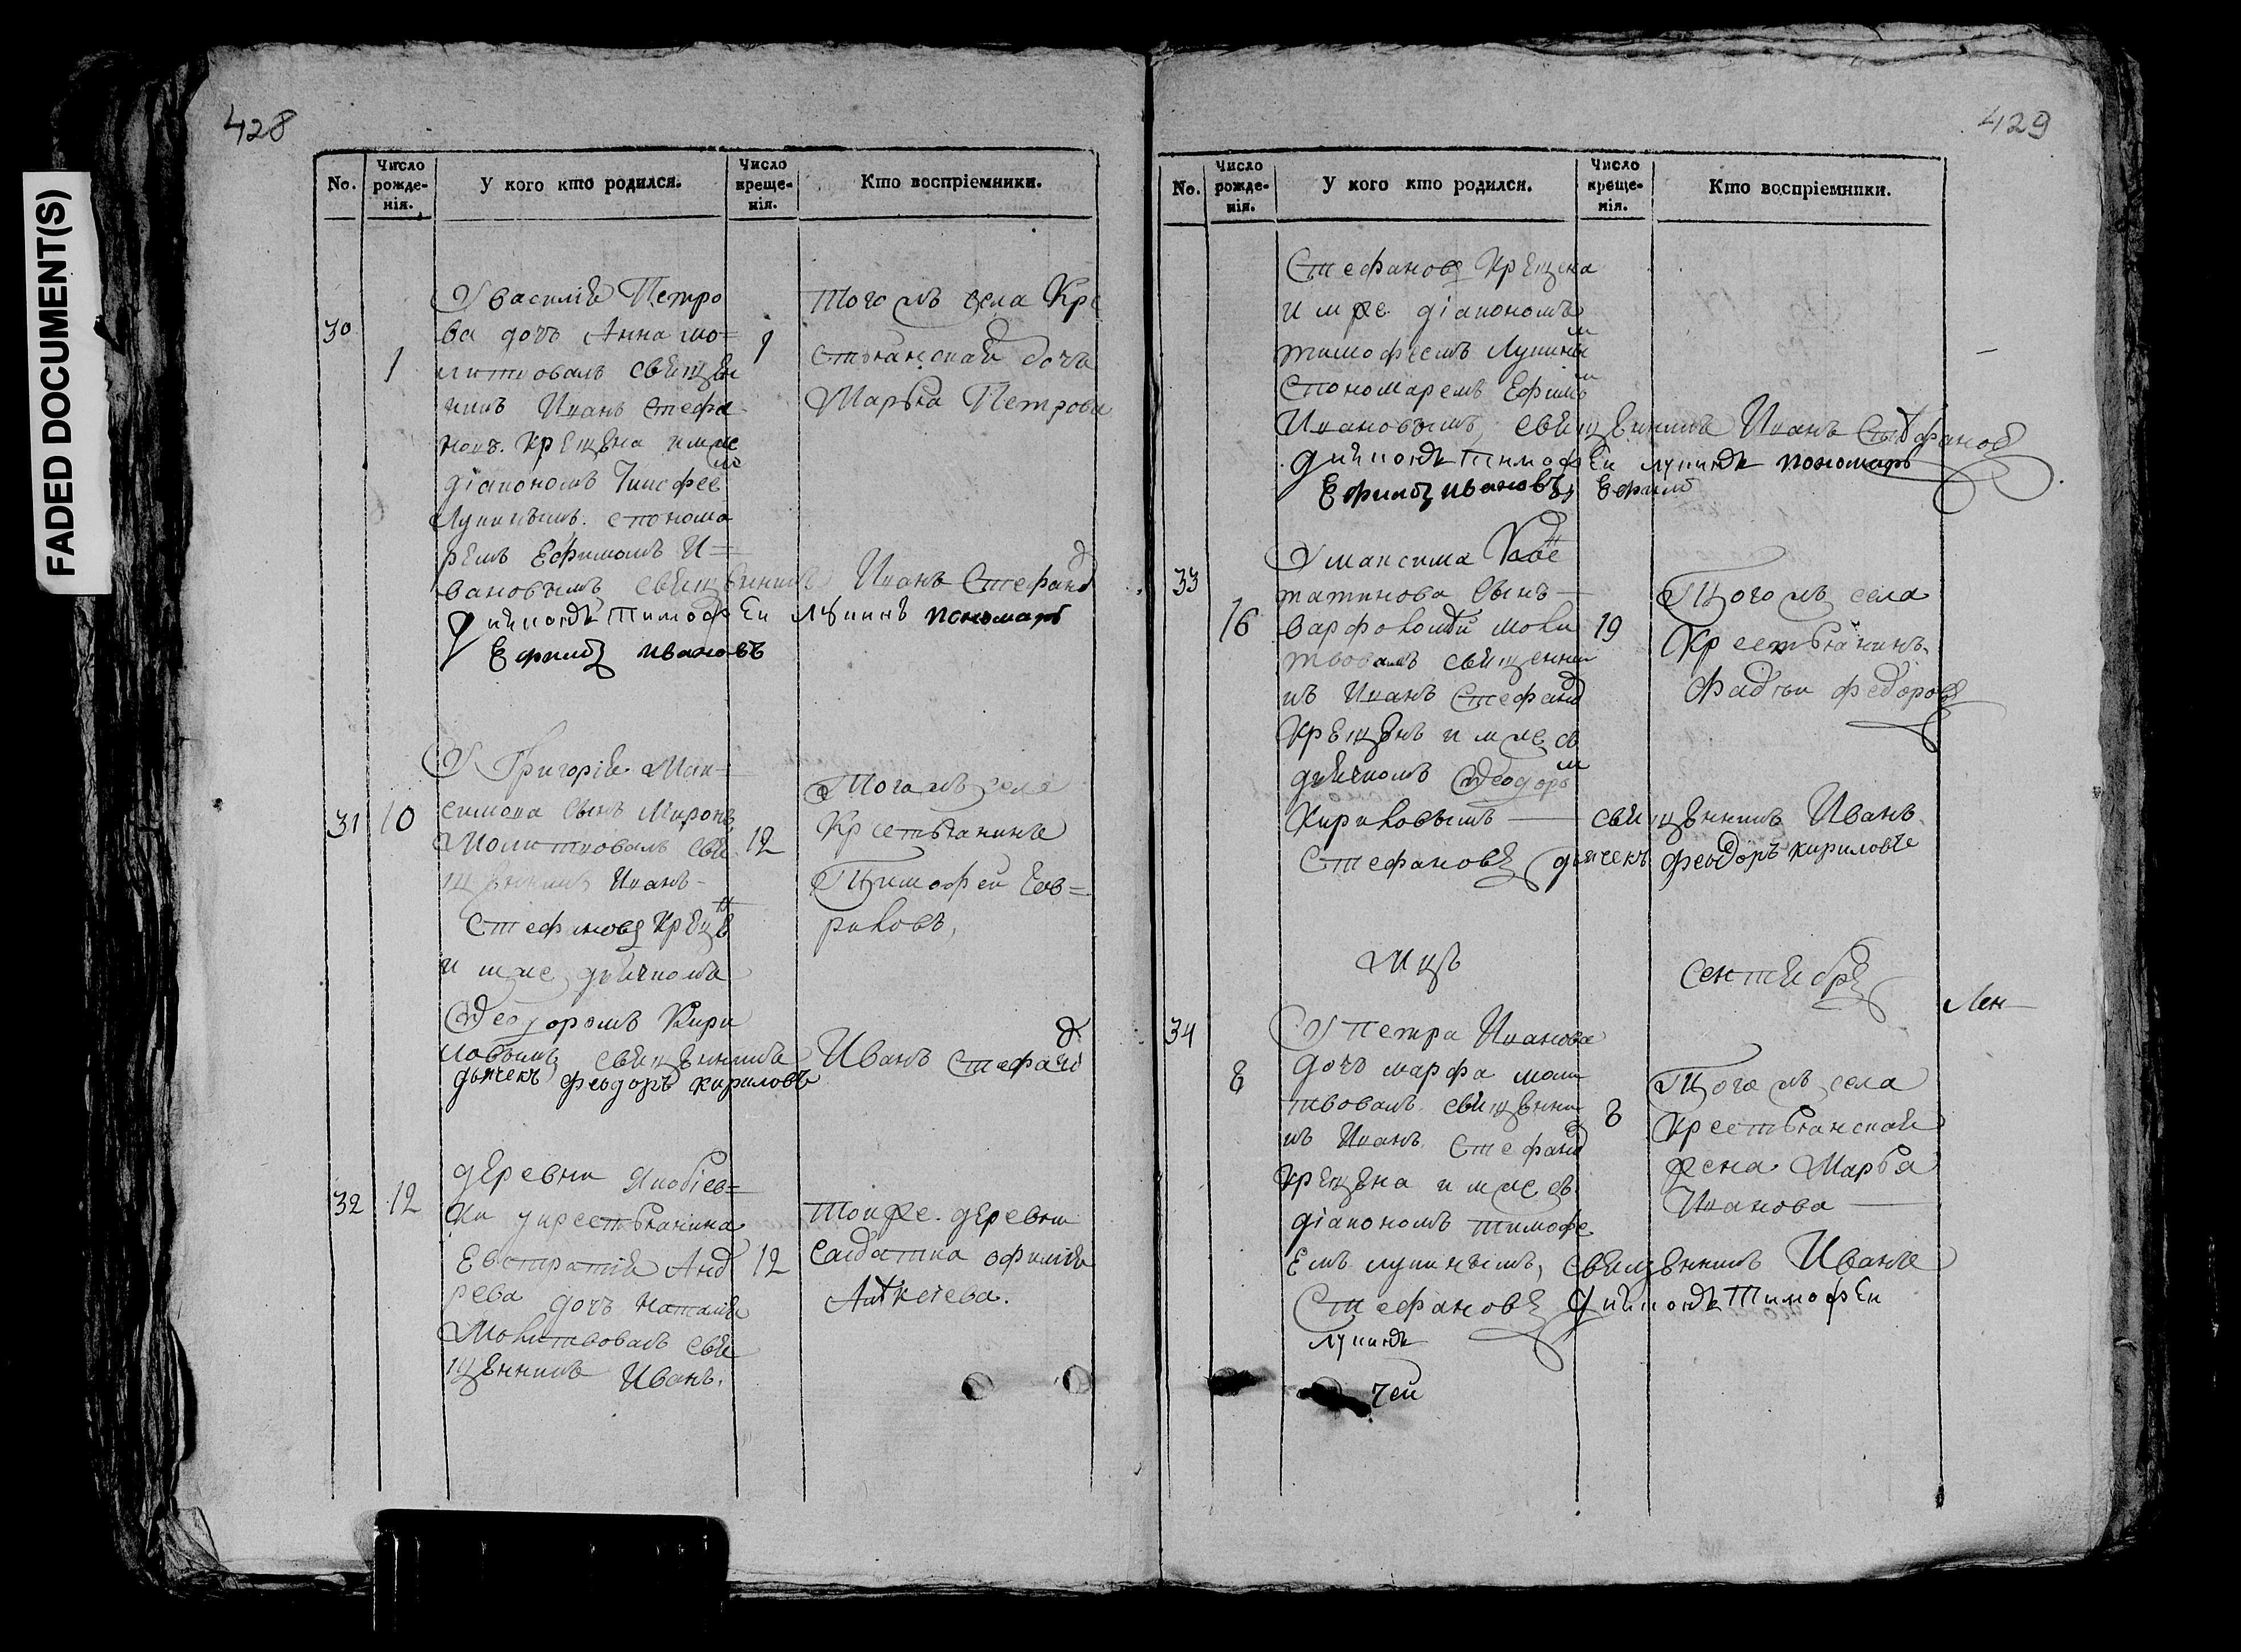 428
FADED DOCUMENT(S)
No.
Число рожде-нія.
У кого кто родился.
Число креще-нія.
Кто воспріемники.
30
1
У Василія Петро
ва дочь Анна мо=
литвовалъ священ
никъ Иванъ Стефа
новъ. крещена имъ же
діакономъ Тимофеемъ
Лупинымъ. с понома
ремъ Ефимомъ И=
вановымъ священникъ Иванъ Стефановъ
діяконъ Тимофей Лупинъ пономарь
Ефимъ Ивановъ
1
того жъ села Кре
стьянская дочь
Марья Петрова
31
10
У Григорія Мак-
симова сынъ Миронъ
Молитвовалъ свя
щенникъ Иванъ
Стефановъ крещенъ
имъ же дьячкомъ
Феодоромъ Кири
ловымъ священникъ Иванъ Стефановъ
дьячекъ феодоръ кириловъ
12
Того жъ села
Крестьянинъ
Тимофей Гав=
риловъ,
32
12
деревни Якобіев=
ки у крестьянина
Евстратія Анд
рева дочь Наталия
Молитвовалъ свя
щенникъ Иванъ.
12
той же деревни
салдатка офимія
429
No.
Число рожде-нія.
У кого кто родился.
Число креще-нія.
Кто воспріемники.
Стефановъ крещена
имъ же діакономъ
тимофеемъ Лупинымъ
с пономаремъ Ефимомъ
Ивановымъ, священникъ Иванъ Стефановъ
діяконъ Тимофей лупинъ пономарь
Ефимъ Ивановъ
33
16
У максима
сынъ
варфоломей моли
твовалъ священни
къ Иванъ Стефановъ
Крещенъ имъ же съ
дьячкомъ Феодоромъ
Кириловымъ — священникъ Иванъ
Стефановъ дьячекъ феодоръ кириловъ
19
Того жъ села
Крестьянинъ
Фадей федоровъ
Мцъ
Сентябрь
34
8
У петра Иванова
дочь марфа моли
твовалъ священни
къ Иванъ Стефановъ
крещена имъ же съ
діакономъ тимофе
емъ лупинымъ, священникъ Иванъ
Стефановъ діяконъ Тимофей
лупинъ
8
Того жъ села
крестьянская
жена Марья
Иванова